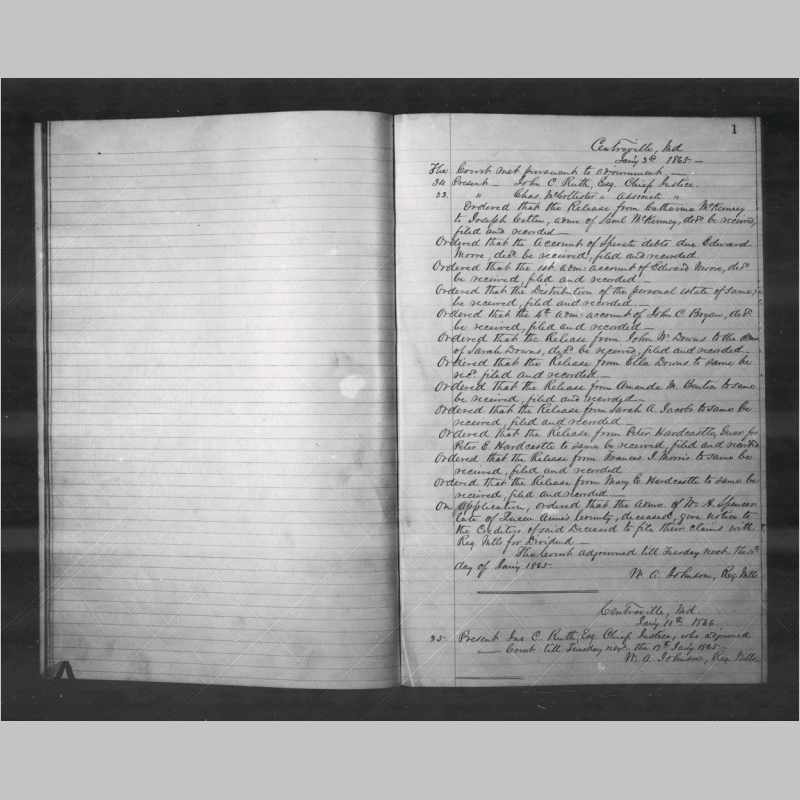 1
Centreville, Md
Jan'y 3d 1865 —
The Court met pursuant to adjournment —
34 Present — John C. Ruth, Esq. Chief Justice
33. " Chas. McCollister " Associate "
Ordered that the Release from Catharine McKenney
to Joseph admr of Saml McKenney, decd be received,
filed and recorded —
Ordered that the Account of Sperate debts due Edward
Moore, decd be received, filed and recorded
Ordered that the 1st adm: account of Edward Moore, decd
be received, filed and recorded —
Ordered that the Distribution of the personal estate of same,
be received, filed and recorded —
Ordered that the 4th adm: account of John C. Bryan, decd
be received, filed and recorded —
Ordered that the Release from John W. Downs to the
of Sarah Downs, decd be received, filed and recorded —
Ordered that the Release from Ella Downs to same be
recd filed and recorded —
Ordered that the Release from Amanda M. Benton to same
be received, filed and recorded —
Ordered that the Release from Sarah A. Jacobs to same be
received, filed and recorded —
Ordered that the Release from Peter Hardcastle, for
Peter E. Hardcastle to same be received, filed and recorded
Ordered that the Release from Francis J. Morris to same be
received, filed and recorded
Ordered that the Release from Mary E. Hardcastle to same be
received, filed and recorded —
On application, ordered that the admr. of Wm. H. Spencer
late of Queen Anne's County, deceased, give notice to
the Creditors of said Deceased to file their claims with
Reg. Wills for Dividend —
The Court adjourned till Tuesday next the
day of Jan'y 1865
W. A. Johnson, Reg. Wills
Centreville, Md.
Jan'y
35 Present Jno. C. Ruth, Esq. Chief Justice, who adjourned
Court till Tuesday next the 17th Jan'y 1865
W. A. Johnson, Reg. Wills